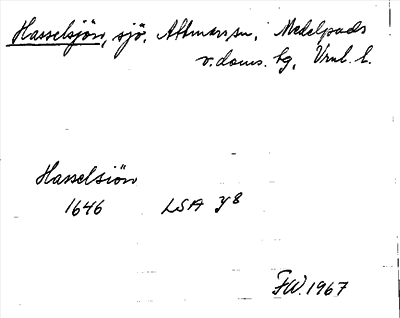 Hasselsjön, sjö, Attmars sn, Medelpads
v. doms. tg, Vrnl. l.
Hasselsiön
1646 LSA Y8
FW. 1967